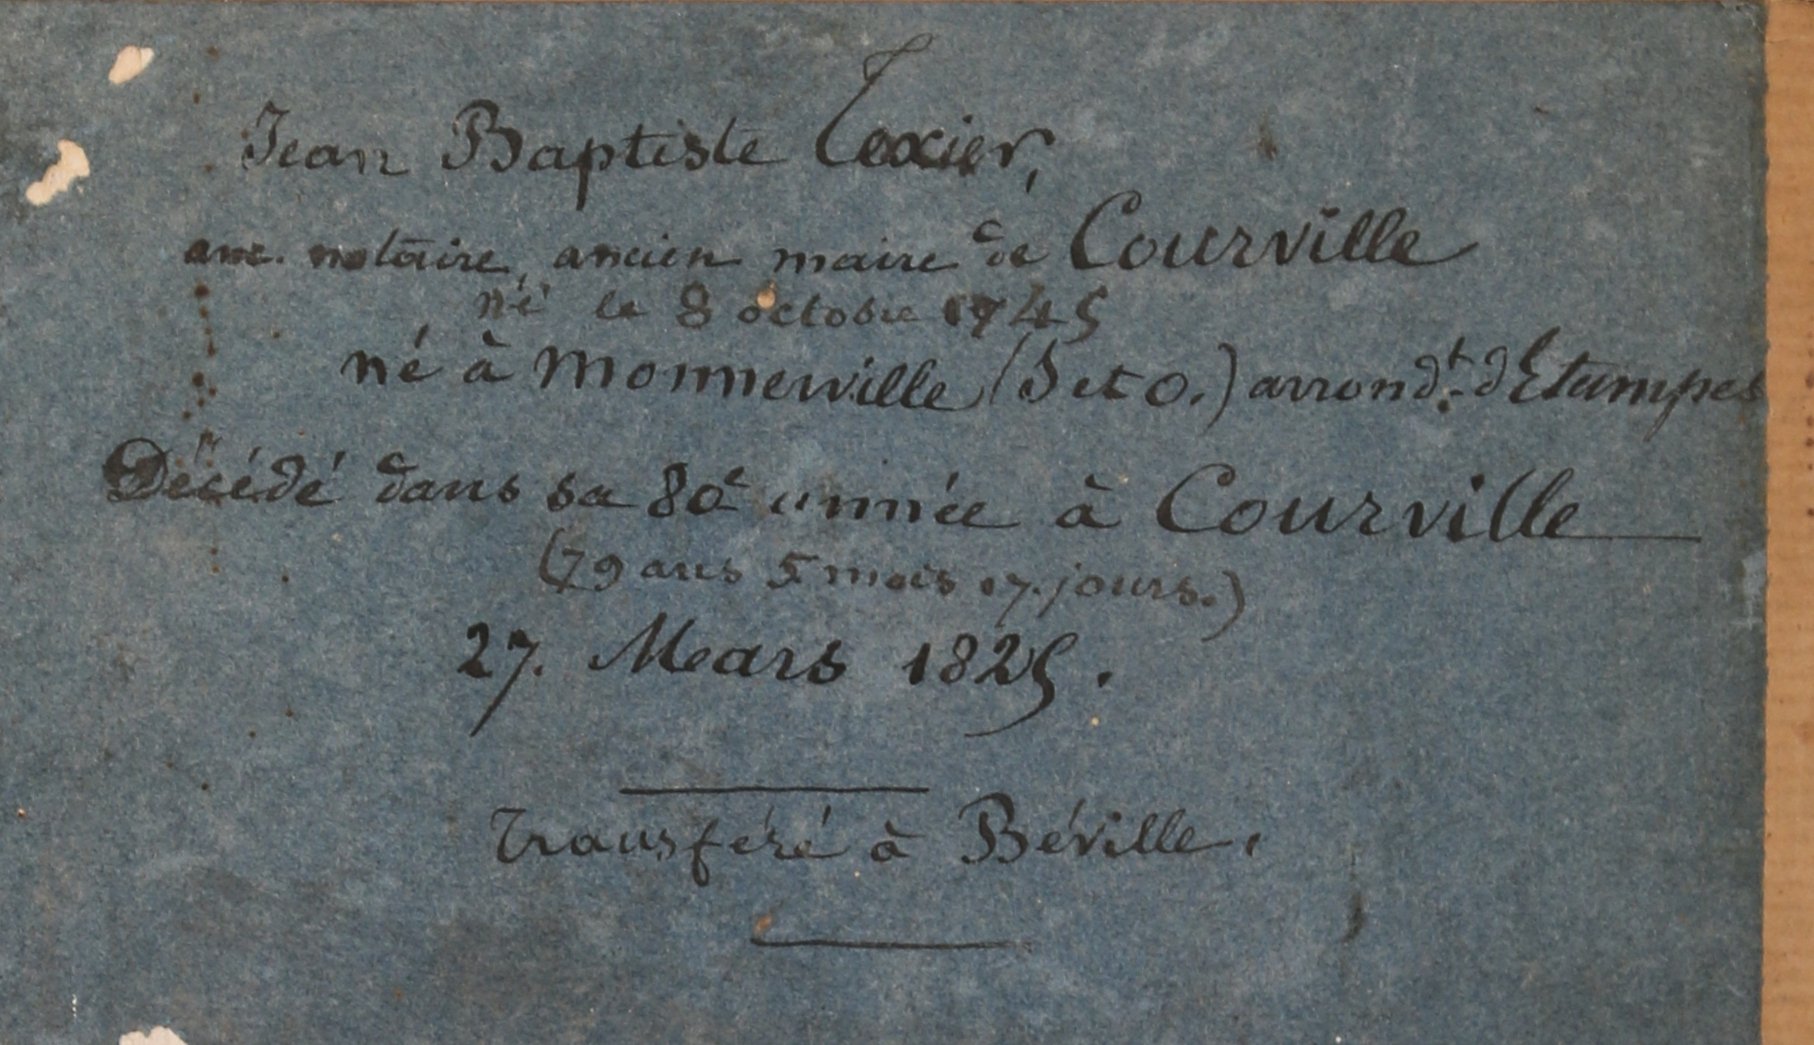 Jean Baptiste Texier,
anc. notaire, ancien maire de Courville
né le 8 octobre 1745
né à Monnerville (S et O.) arrondt. d'Etampes
Décédé dans sa 80e année à Courville
(79 ans 5 mois 17 jours.)
27. Mars 1825.
Transféré à Béville.